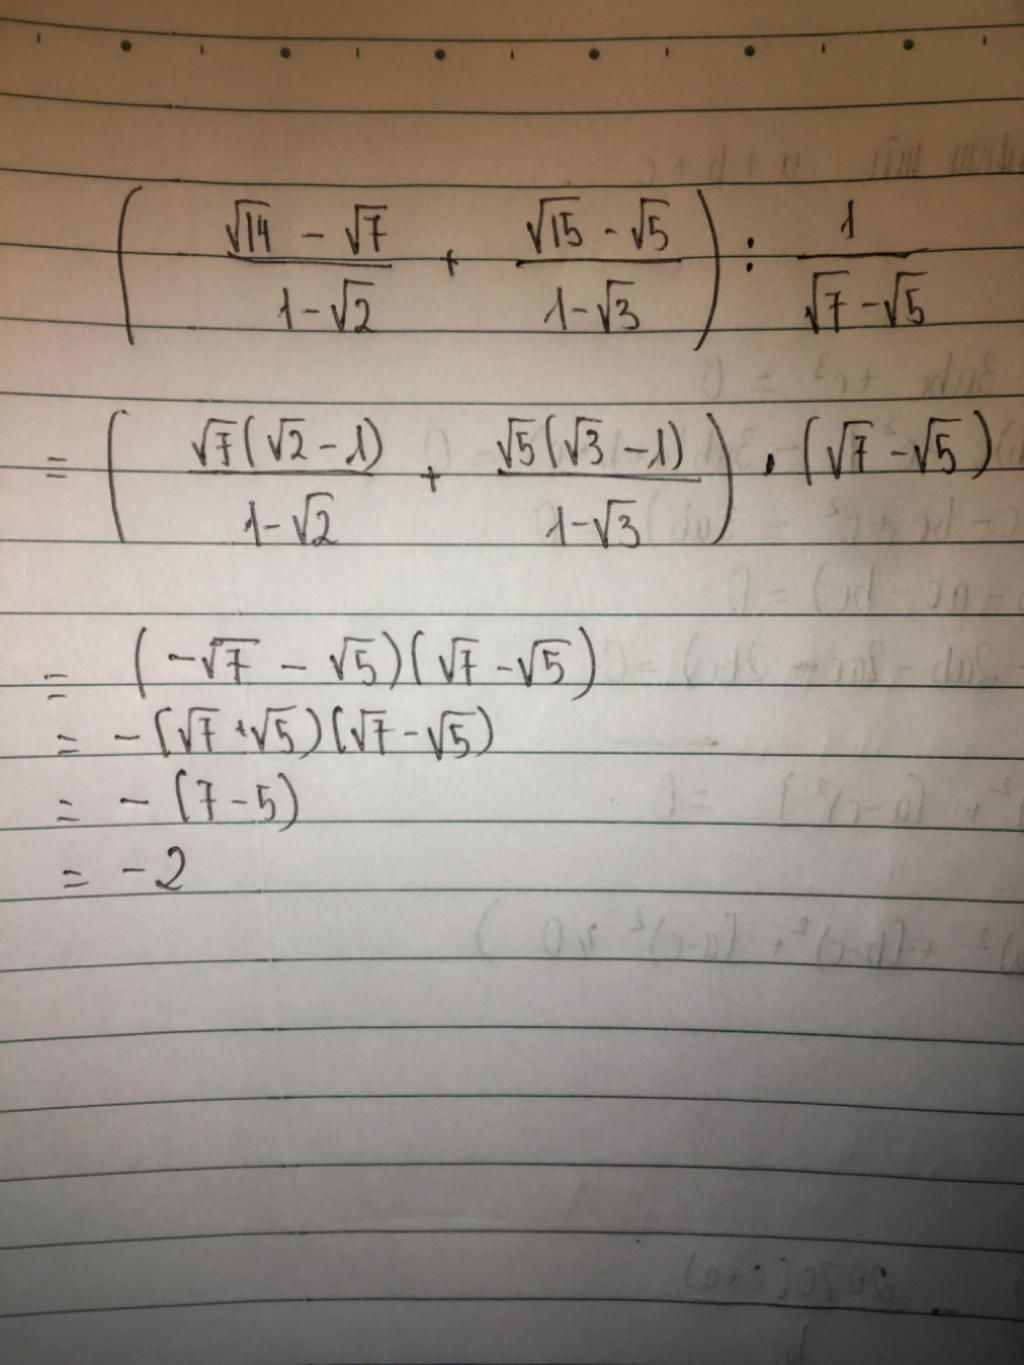 ( (√14 - √7)/(1-√2) + (√15 - √5)/(1-√3) ) : 1/(√7-√5)
= ( √7(√2-1)/(1-√2) + √5(√3-1)/(1-√3) ) . (√7-√5)
= (-√7 - √5)(√7-√5)
= -(√7+√5)(√7-√5)
= - (7-5)
= -2